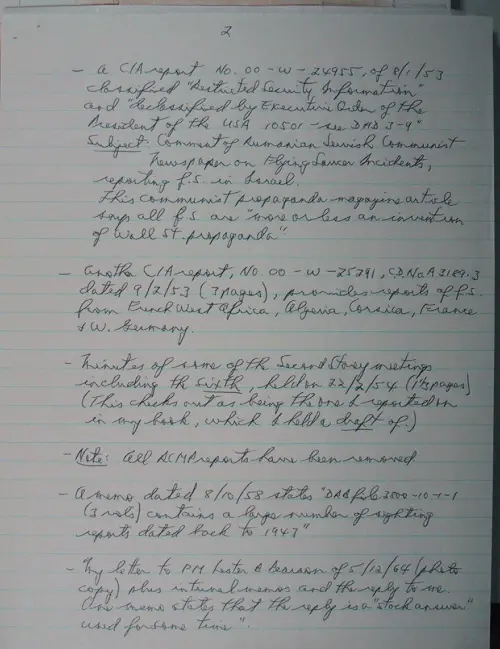 2
- A CIA report No. 00-W-24955, of 8/1/53
classified "Restricted Security Information"
and "declassified by Executive Order of the
President of the USA 10501 - see DAD 3-9"
Subject: Comment of Rumanian Jewish Communist
Newspaper on Flying Saucer Incidents,
reporting f.s. in Israel.
This communist propaganda magazine article
says all f.s. are "more or less an invention
of Wall St. propaganda"
- Another CIA report, No. 00-W-25291, CD No A3189.3
dated 9/2/53 (3 pages), provides reports of f.s.
from French West Africa, Algeria, Corsica, France
& W. Germany.
- Minutes of some of the Second Story meetings
including the sixth, held on 22/2/54 (1½ pages)
(This checks out as being the one I reported on
in my book, which I held a draft of.)
- Note: All RCMP reports have been removed
- A memo dated 8/10/58 states "DAB file 3500-10-1-1
(3 vols) contains a large number of sighting
reports dated back to 1947"
- My letter to PM Lester B Pearson of 5/12/64 (photo
copy) plus internal memos and the reply to me.
One memo states that the reply is a "stock answer"
used for some time".